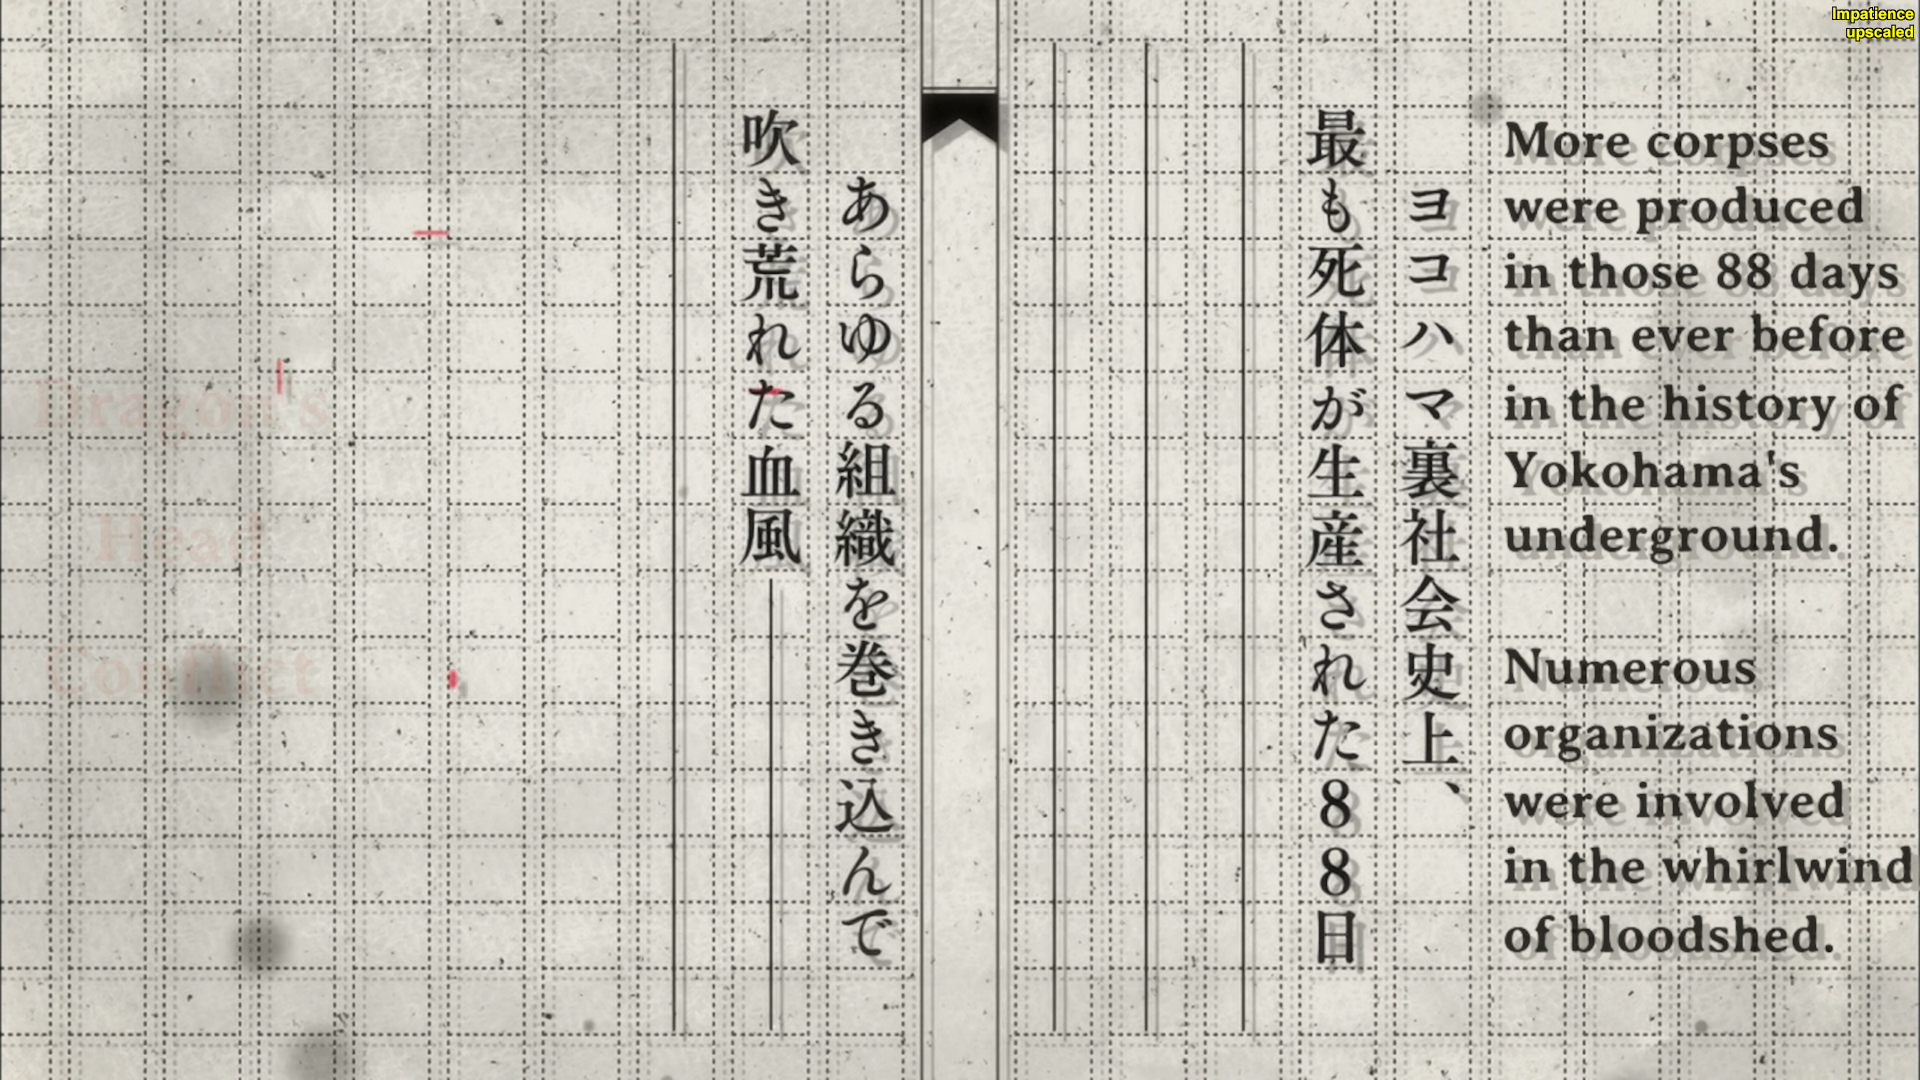 Impatience
upscaled
More corpses
were produced
in those 88 days
than ever before
in the history of
Yokohama's
underground.
Numerous
organizations
were involved
in the whirlwind
of bloodshed.
ヨコハマ裏社会史上、
最も死体が生産された88日
あらゆる組織を巻き込んで
吹き荒れた血風――
Dragon's
Head
Conflict